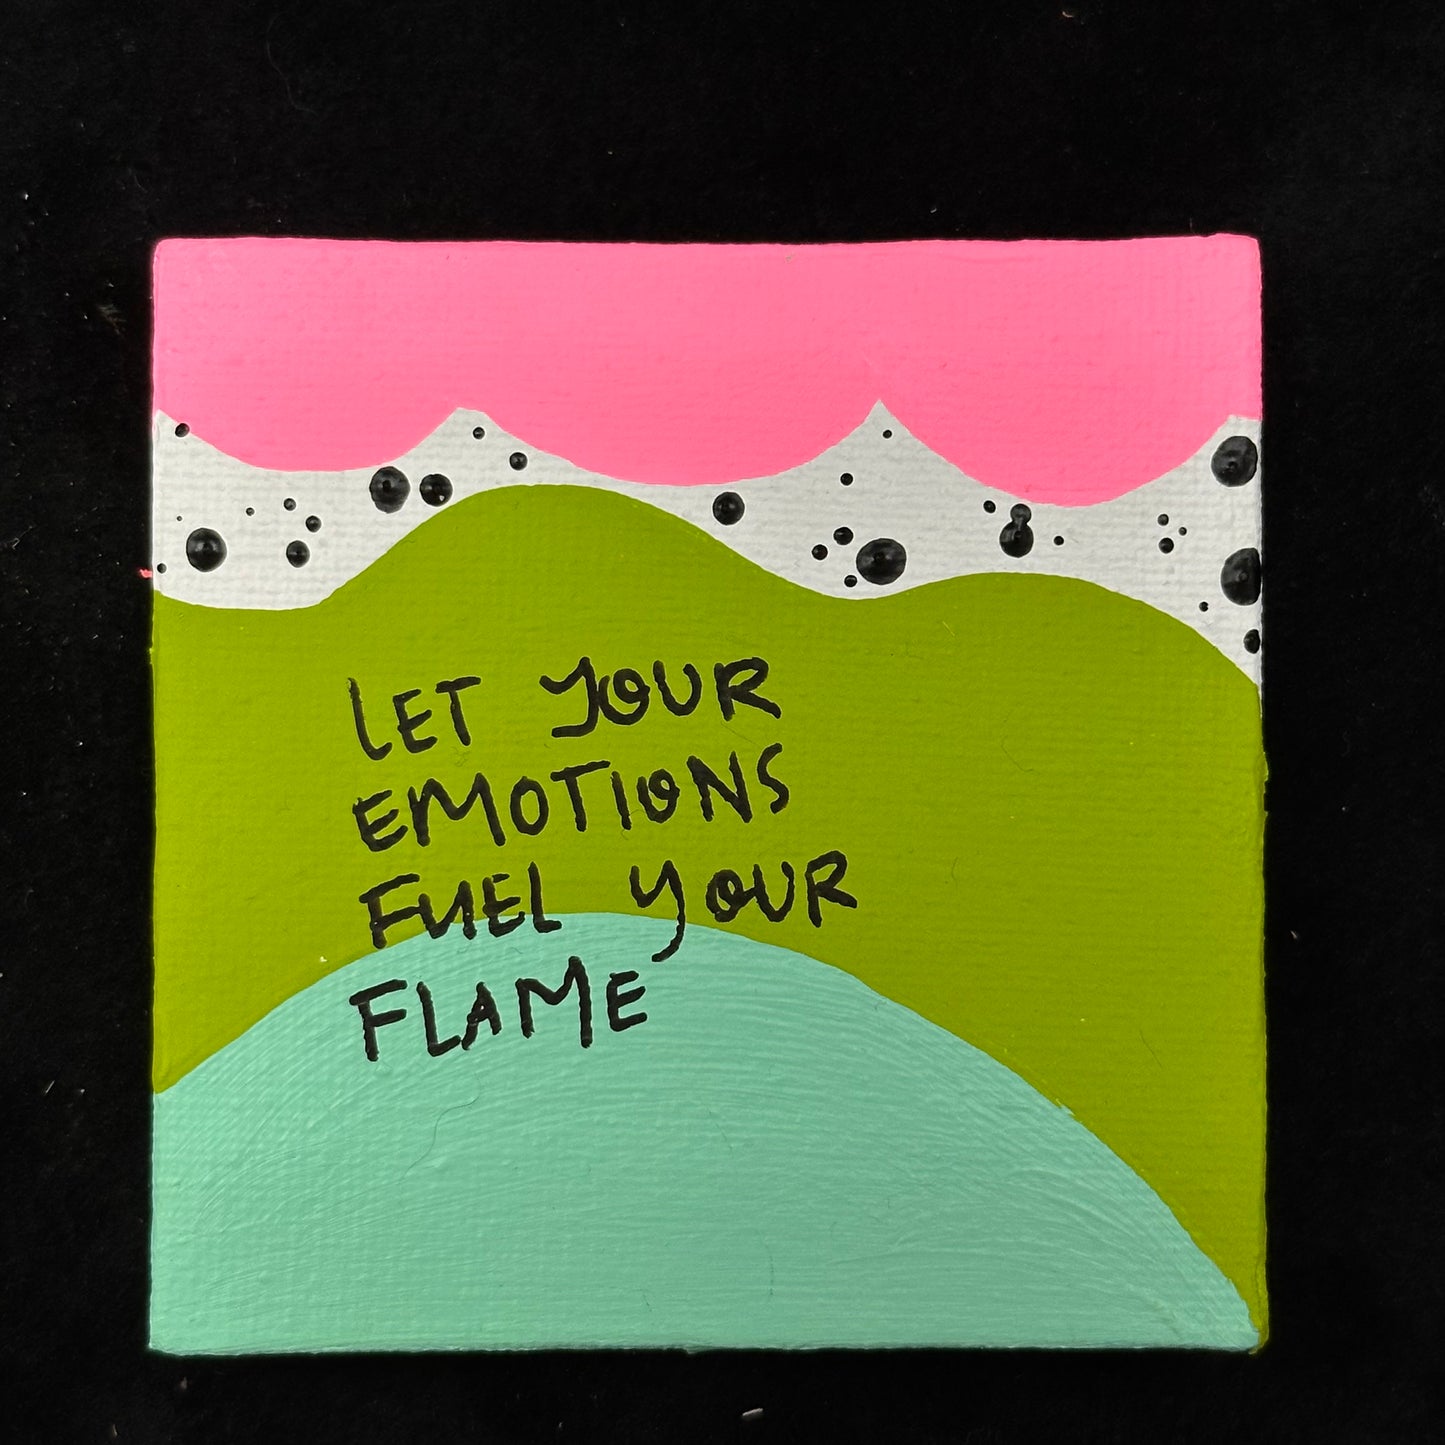 LET YOUR
EMOTIONS
FUEL YOUR
FLAME